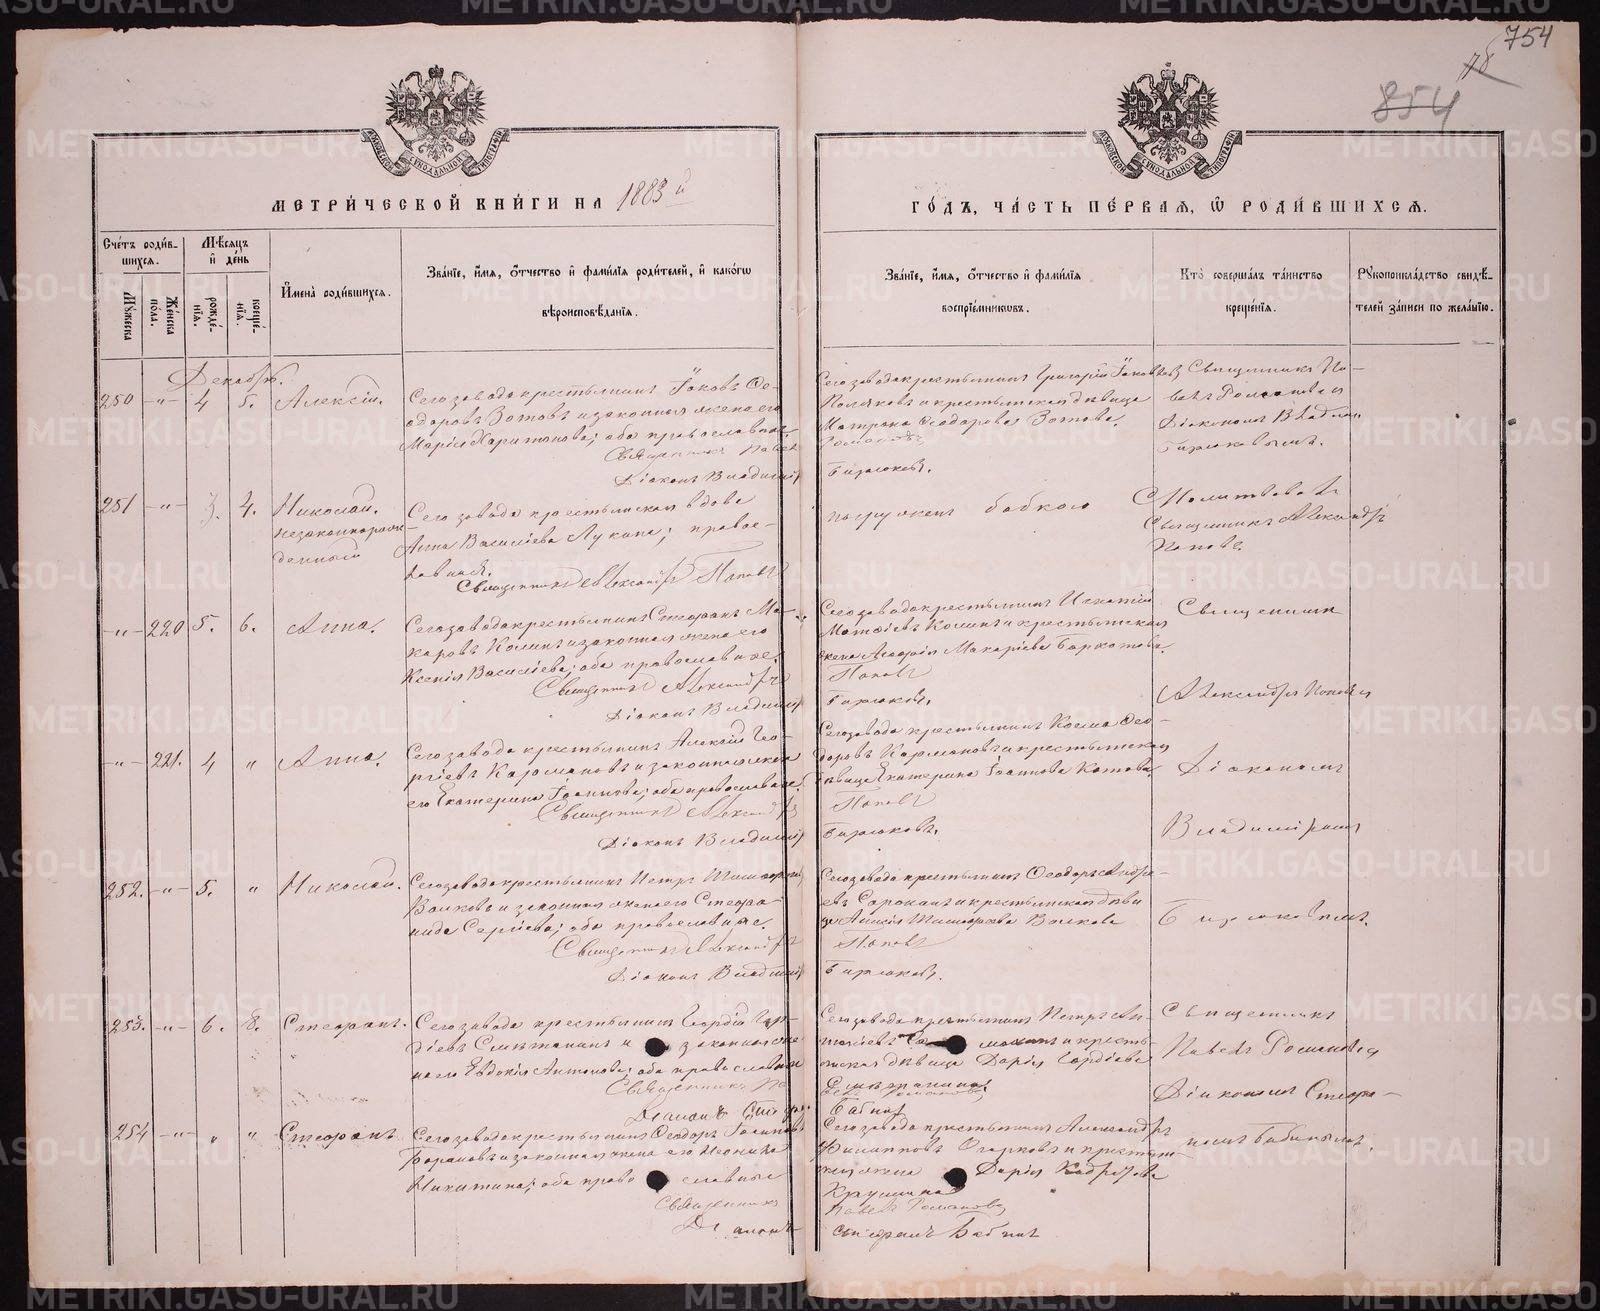 754
78
854
МОСКОВСКОЙ СУНОДАЛЬНОЙ ТИПОГРАФІИ
МОСКОВСКОЙ СУНОДАЛЬНОЙ ТИПОГРАФІИ
МЕТРИ́ЧЕСКОЙ КНИ́ГИ НА 1883 й
ГО́ДЪ, ЧА́СТЬ ПЕ́РВАЯ, Ѿ РОДИ́ВШИХСЯ.
Сче́тъ роди́в-
шихся.
Мѣ́сяцъ
и де́нь
Му́жеска
Же́нска
по́ла.
рожде́-
нія.
креще́-
нія.
Имена̀ роди́вшихся.
Зва́ніе, и́мя, о́тчество и фами́лія роди́телей, и како́гѡ
вѣроисповѣ́данія.
Зва́ніе, и́мя, о́тчество и фами́лія
воспріе́мниковъ.
Кто̀ соверша́лъ та́инство
креще́нія.
Рукоприкла́дство свидѣ́-
телей за́писи по жела́нію.
Декабрь.
250 -"- 4 5. Алексій.
Сего завода крестьянинъ Іаковъ Ѳе-
одоровъ Зотовъ и законная жена его
Марія Харитонова; оба православные.
Священникъ Павелъ
Діаконъ Владимір
Сего завода крестьянинъ Григорій Іаковлевъ
Поляковъ и крестьянская дѣвица
Матрона Ѳеодорова Зотова.
Романовъ
Бирюковъ.
Священникъ Па-
велъ Романовъ и
діакономъ Владим
Бирюковымъ.
251 -"- 3. 4. Николай.
незаконнорож-
денный
Сего завода крестьянская вдова
Анна Василіева Лукина; право-
славная.
Священникъ Александръ Поповъ
погруженъ бабкою
С Молитвовалъ
Священникъ Александръ
Поповъ.
-"- 220 5. 6. Анна.
Сего завода крестьянинъ Стефанъ Ма-
каровъ Колинъ и законная жена его
Ксенія Василіева; оба православные.
Священникъ Александръ
Діаконъ Владимір
Сего завода крестьянинъ Игнатій
Матѳіевъ Колинъ и крестьянская
жена Макаріева
Поповъ
Бирюковъ.
Священникъ
Александръ Поповъ и
-"- 221. 4 " Анна.
Сего завода крестьянинъ Алексій Гео-
ргіевъ Кармановъ и законная жена
его Екатерина Іоаннова; оба православные.
Священникъ Александръ
Діаконъ Владимір
Сего завода крестьянинъ Косма Ѳео-
доровъ Кармановъ и крестьянская
дѣвица Екатерина Іоаннова Котова.
Поповъ
Бирюковъ.
Діакономъ
Владиміромъ
252. -"- 5. " Николай.
Сего завода крестьянинъ Петръ
Волковъ и законная жена его Стефа-
нида Сергіева; оба православные.
Священникъ Александръ
Діаконъ Владимір
Сего завода крестьянинъ Ѳеодоръ Андре-
евъ и крестьянская дѣви
ца Волкова
Поповъ
Бирюковъ.
Бирюковымъ.
253. -"- 6. 8. Стефанъ.
Сего завода крестьянинъ Гордій
діевъ Смѣтанинъ и законная же-
на его Евдокія Антонова; оба православные
Священникъ Па
Діаконъ Стефа
Сего завода крестьянинъ Петръ
и кресть-
янская дѣвица Дарія Гордіева
Смѣтанина.
Романовъ
Бабинъ
Священникъ
Павелъ Романовъ и
Діаконъ Стефа-
номъ Бабинымъ.
254 -"- " " Стефанъ.
Сего завода крестьянинъ Ѳеодоръ Іоанновъ
и законная жена его
Никитина; оба православные
Священникъ
Діаконъ
Сего завода крестьянинъ Александръ
Филипповъ Огарковъ и крестьян-
ская жена Дарія
Павелъ Романовъ
Стефанъ Бабинъ
METRIKI.GASO-URAL.RU